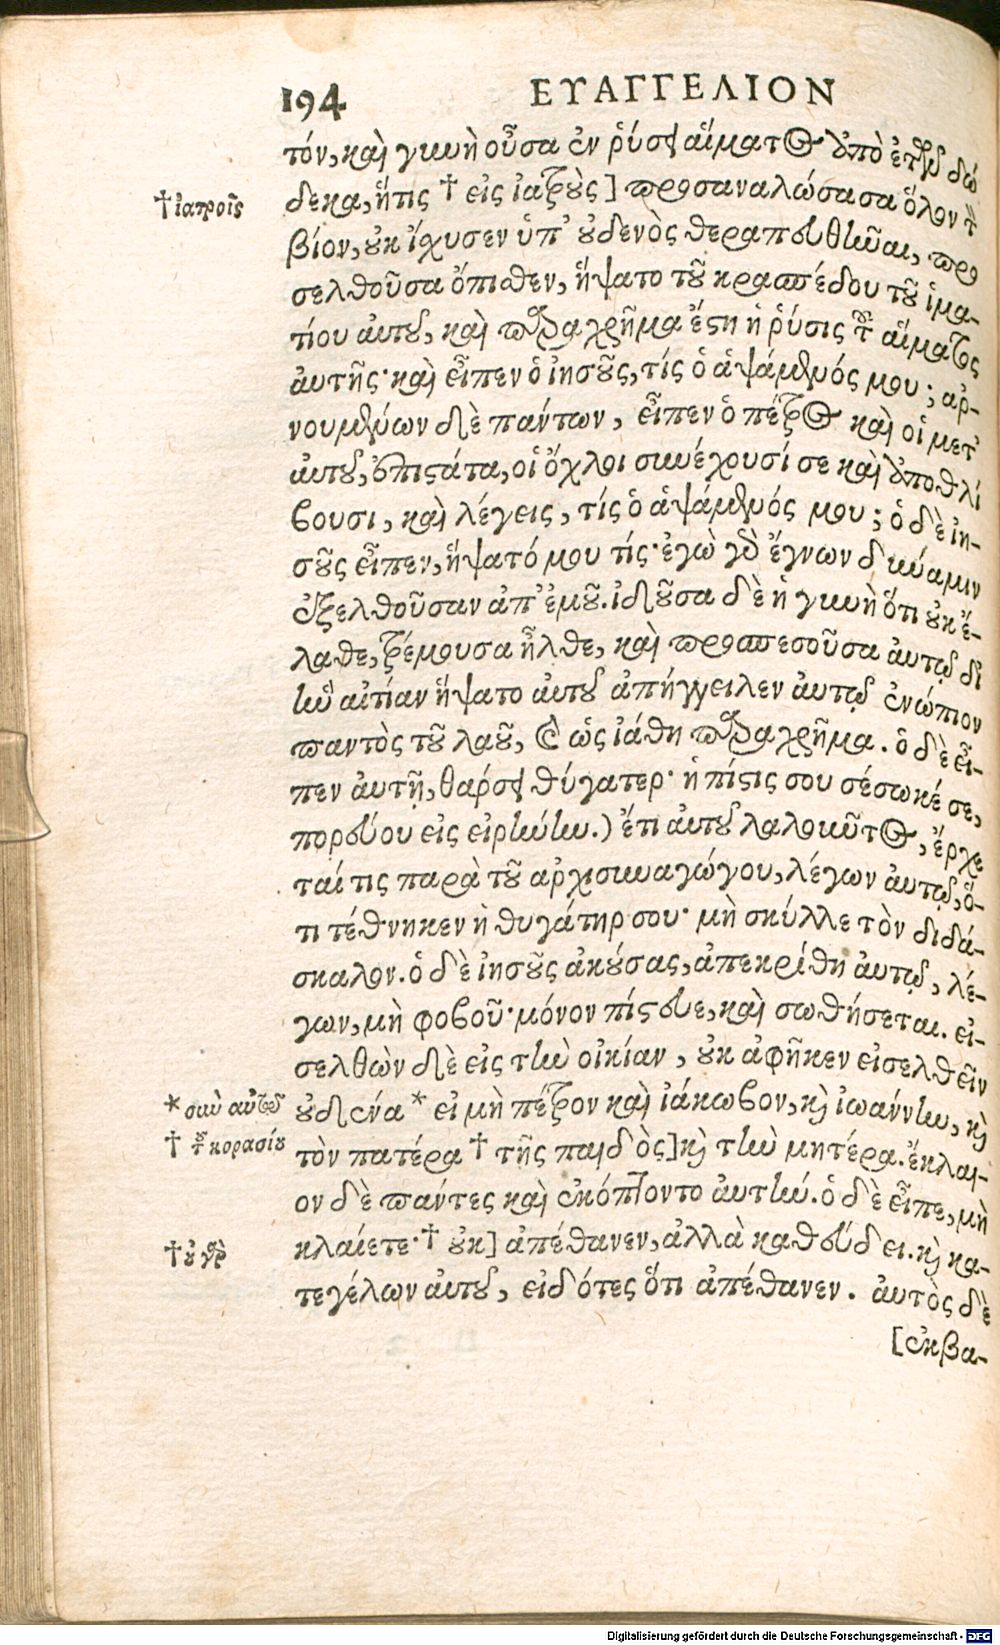 194 ΕΥΑΓΓΕΛΙΟΝ
τόν, καὶ γυνὴ οὖσα ἐν ῥύσει αἵματος ἀπὸ ἐτῶν δώ
δεκα, ἥτις † εἰς ἰατροὺς] προσαναλώσασα ὅλον τὸν
† ἰατροῖς
βίον, οὐκ ἴσχυσεν ὑπ' οὐδενὸς θεραπευθῆναι, προ
σελθοῦσα ὄπισθεν, ἥψατο τοῦ κρασπέδου τοῦ ἱμα-
τίου αὐτοῦ, καὶ παραχρῆμα ἔστη ἡ ῥύσις τοῦ αἵματος
αὐτῆς· καὶ εἶπεν ὁ ἰησοῦς, τίς ὁ ἁψάμενός μου; ἀρ-
νουμένων δὲ πάντων, εἶπεν ὁ πέτρος καὶ οἱ μετ'
αὐτοῦ, ἐπιστάτα, οἱ ὄχλοι συνέχουσί σε καὶ ἀποθλί
βουσι, καὶ λέγεις, τίς ὁ ἁψάμενός μου; ὁ δὲ ἰη-
σοῦς εἶπεν, ἥψατό μου τίς· ἐγὼ γὰρ ἔγνων δύναμιν
ἐξελθοῦσαν ἀπ' ἐμοῦ. ἰδοῦσα δὲ ἡ γυνὴ ὅτι οὐκ ἔ-
λαθε, τρέμουσα ἦλθε, καὶ προσπεσοῦσα αὐτῷ δι'
ἣν αἰτίαν ἥψατο αὐτοῦ ἀπήγγειλεν αὐτῷ ἐνώπιον
παντὸς τοῦ λαοῦ, καὶ ὡς ἰάθη παραχρῆμα. ὁ δὲ εἶ-
πεν αὐτῇ, θάρσει θύγατερ· ἡ πίστις σου σέσωκέ σε,
πορεύου εἰς εἰρήνην.) ἔτι αὐτοῦ λαλοῦντος, ἔρχε
ταί τις παρὰ τοῦ ἀρχισυναγώγου, λέγων αὐτῷ, ὅ-
τι τέθνηκεν ἡ θυγάτηρ σου· μὴ σκύλλε τὸν διδά-
σκαλον. ὁ δὲ ἰησοῦς ἀκούσας, ἀπεκρίθη αὐτῷ, λέ-
γων, μὴ φοβοῦ· μόνον πίστευε, καὶ σωθήσεται. εἰ-
σελθὼν δὲ εἰς τὴν οἰκίαν, οὐκ ἀφῆκεν εἰσελθεῖν
* σὺν αὐτῷ
οὐδένα * εἰ μὴ πέτρον καὶ ἰάκωβον, καὶ ἰωάννην, καὶ
† τοῦ κορασίου
τὸν πατέρα † τῆς παιδὸς] καὶ τὴν μητέρα. ἔκλαι-
ον δὲ πάντες καὶ ἐκόπτοντο αὐτήν. ὁ δὲ εἶπε, μὴ
† οὐ γὰρ
κλαίετε· † οὐκ] ἀπέθανεν, ἀλλὰ καθεύδει. καὶ κα-
τεγέλων αὐτοῦ, εἰδότες ὅτι ἀπέθανεν. αὐτὸς δὲ
[ἐκβα-
Digitalisierung gefördert durch die Deutsche Forschungsgemeinschaft - DFG